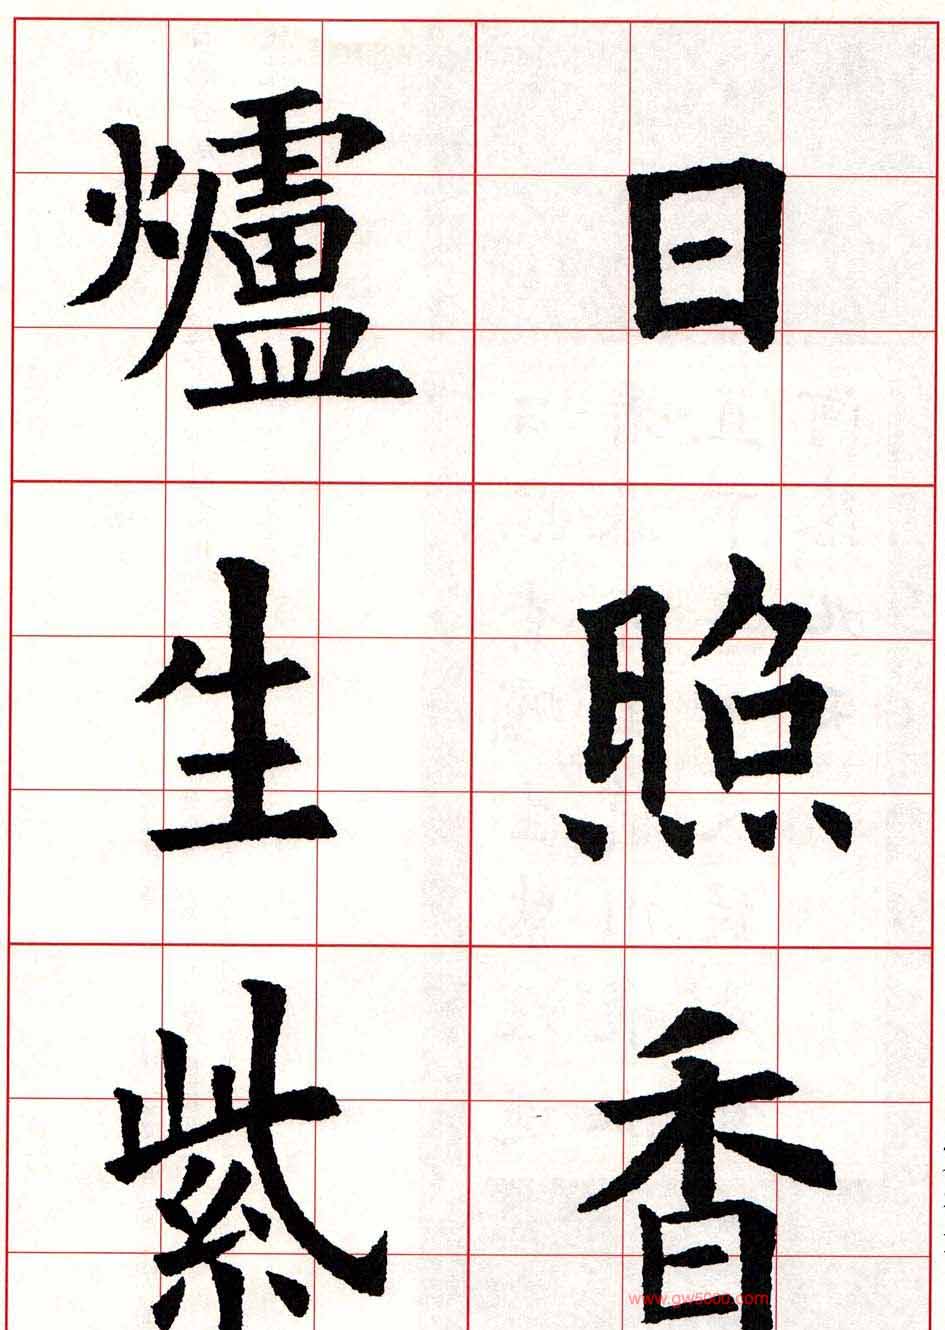 日照香
爐生紫
www.gw5000.com